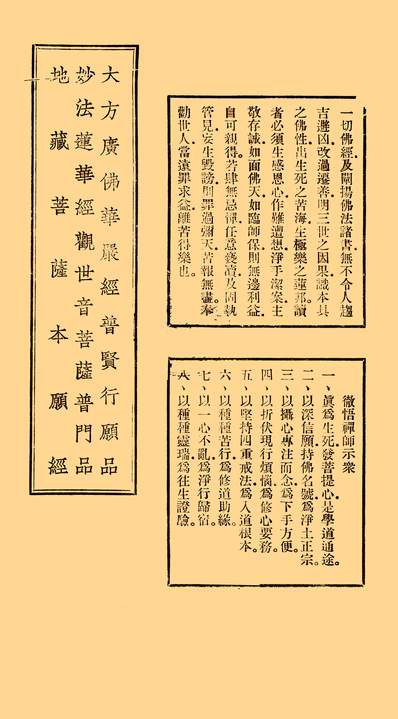 一切佛經及闡揚佛法諸書無不令人趨
吉避凶改過遷善明三世之因果識本具
之佛性出生死之苦海生極樂之蓮邦讀
者必須生感恩心作難遭想淨手潔案主
敬存誠如面佛天如臨師保則無邊利益
自可親得若肆無忌憚任意褻瀆及固執
管見妄生毀謗則罪過彌天苦報無盡奉
勸世人當遠罪求益離苦得樂也
徹悟禪師示衆
一、眞為生死發菩提心是學道通途。
二、以深信願持佛名號為淨土正宗。
三、以攝心專注而念為下手方便。
四、以折伏現行煩惱為修心要務。
五、以堅持四重戒法為入道根本。
六、以種種苦行為修道助緣。
七、以一心不亂為淨行歸宿。
八、以種種靈瑞為往生證驗。
大方廣佛華嚴經普賢行願品
妙法蓮華經觀世音菩薩普門品
地藏菩薩本願經